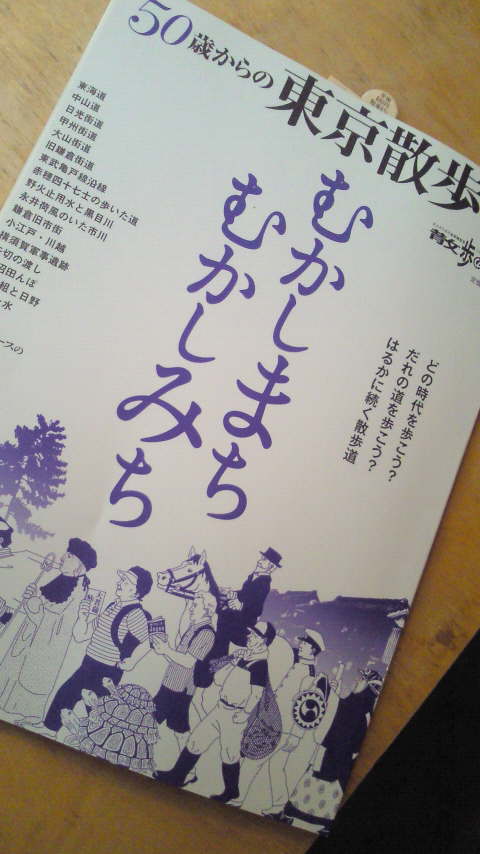 50歳からの
東京散歩
むかしまち
むかしみち
どの時代を歩こう?
だれの道を歩こう?
はるかに続く散歩道
東海道
中山道
日光街道
甲州街道
大山街道
旧鎌倉街道
東武亀戸線沿線
赤穂四十七士の歩いた道
野火止用水と黒目川
永井荷風のいた市川
鎌倉旧市街
小江戸・川越
横須賀軍事遺跡
切の渡し
沼田んぼ
組と日野
水
ースの